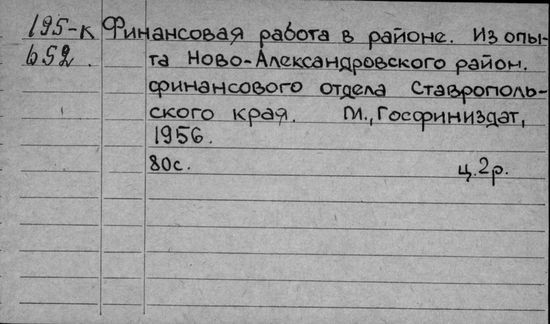 195-к Финансовая работа в районе. Из опы-
652. та Ново-Александровского район.
финансового отдела Ставрополь-
ского края. М., Госфиниздат,
1956.
80с. ц.2р.